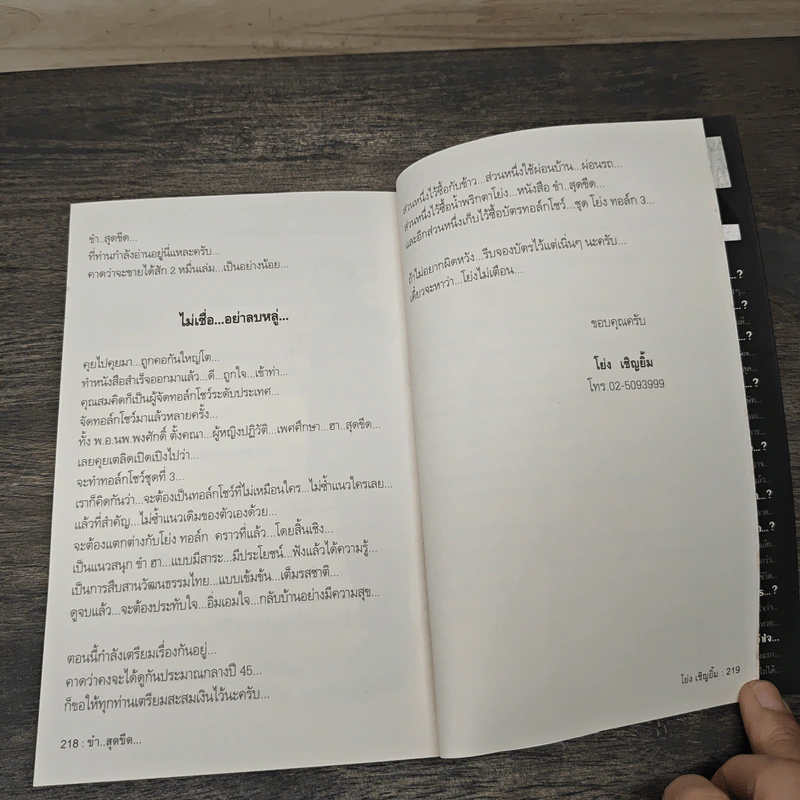 ขำ..สุดขีด...
ที่ท่านกำลังอ่านอยู่นี่แหละครับ...
คาดว่าจะขายได้สัก 2 หมื่นเล่ม...เป็นอย่างน้อย...
ไม่เชื่อ...อย่าลบหลู่...
คุยไปคุยมา...ถูกคอกันใหญ่โต...
ทำหนังสือสำเร็จออกมาแล้ว...ดี...ถูกใจ...เข้าท่า...
คุณสมคิดก็เป็นผู้จัดทอล์กโชว์ระดับประเทศ...
จัดทอล์กโชว์มาแล้วหลายครั้ง...
ทั้ง พ.อ.นพ.พงศักดิ์ ตั้งคณา...ผู้หญิงปฏิวัติ...เพศศึกษา...ฮา..สุดขีด...
เลยคุยเตลิดเปิดเปิงไปว่า...
จะทำทอล์กโชว์ชุดที่ 3...
เราก็คิดกันว่า...จะต้องเป็นทอล์กโชว์ที่ไม่เหมือนใคร...ไม่ซ้ำแนวใครเลย...
แล้วที่สำคัญ...ไม่ซ้ำแนวเดิมของตัวเองด้วย...
จะต้องแตกต่างกับโย่ง ทอล์ก คราวที่แล้ว...โดยสิ้นเชิง...
เป็นแนวสนุก ขำ ฮา...แบบมีสาระ...มีประโยชน์...ฟังแล้วได้ความรู้...
เป็นการสืบสานวัฒนธรรมไทย...แบบเข้มข้น...เต็มรสชาติ...
ดูจบแล้ว...จะต้องประทับใจ...อิ่มเอมใจ...กลับบ้านอย่างมีความสุข...
ตอนนี้กำลังเตรียมเรื่องกันอยู่...
คาดว่าคงจะได้ดูกันประมาณกลางปี 45...
ก็ขอให้ทุกท่านเตรียมสะสมเงินไว้นะครับ...
218 : ขำ..สุดขีด...
ส่วนหนึ่งไว้ซื้อกับข้าว...ส่วนหนึ่งใช้ผ่อนบ้าน...ผ่อนรถ...
ส่วนหนึ่งไว้ซื้อน้ำพริกตาโย่ง...หนังสือ ขำ..สุดขีด...
และอีกส่วนหนึ่งเก็บไว้ซื้อบัตรทอล์กโชว์...ชุด โย่ง ทอล์ก 3...
ถ้าไม่อยากผิดหวัง...รีบจองบัตรไว้แต่เนิ่นๆ นะครับ...
เดี๋ยวจะหาว่า...โย่งไม่เตือน...
ขอบคุณครับ
โย่ง เชิญยิ้ม
โทร.02-5093999
โย่ง เชิญยิ้ม : 219